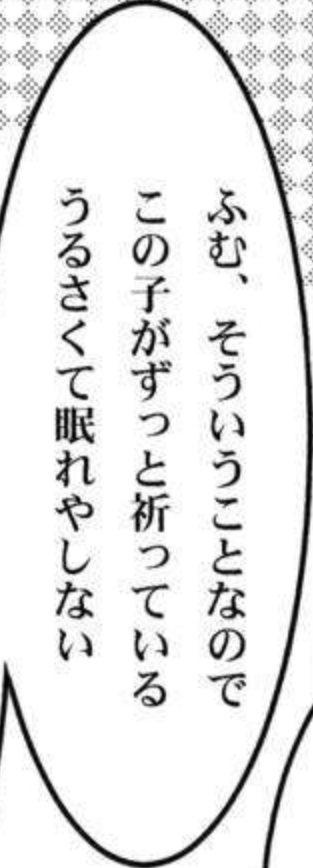 ふむ、そういうことなので
この子がずっと祈っている
うるさくて眠れやしない